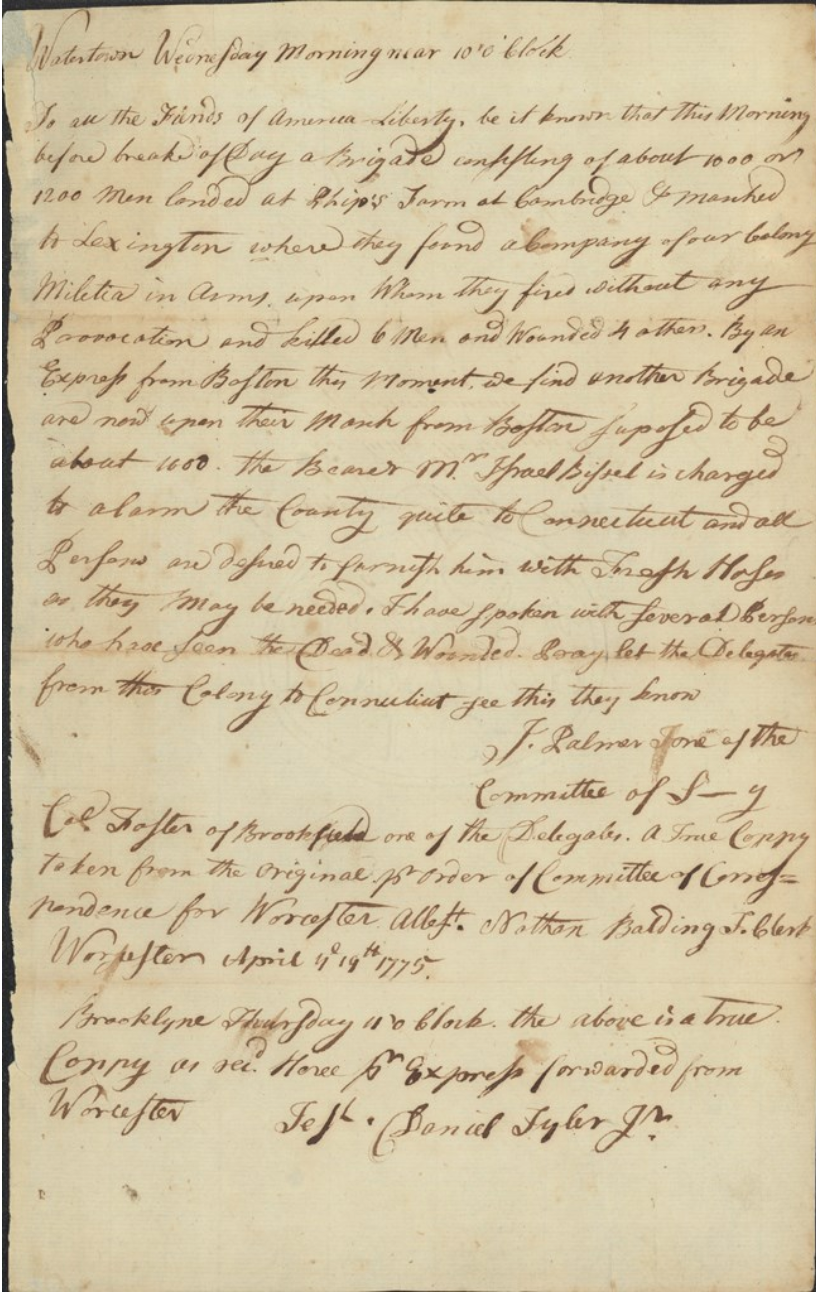 Watertown Wednesday Morning near 10 o'Clock
To all the Friends of America Liberty, be it known that this Morning
before breake of Day a Brigade consisting of about 1000 or
1200 Men landed at Phip's Farm at Cambridge & marched
to Lexington where they found a Company of our Colony
Militia in Arms, upon Whom they fired without any
Provocation and killed 6 Men and Wounded 4 others. By an
Express from Boston this Moment, we find another Brigade
are now upon their March from Boston suposed to be
about 1000. the Bearer Mr. Israel Bissel is charged
to alarm the County quite to Connecticut and all
Persons are desired to furnish him with Fresh Hoses
as they May be needed. I have spoken with several Persons
who have seen the Dead & Wounded. Pray let the Delegates
from this Colony to Connecticut see this they know
J. Palmer one of the
Committee of S—y
Col. Foster of Brookfield one of the Delegates. A True Coppy
taken from the Original pr Order of Committee of Corres=
pondence for Worcester Attest. Nathan Balding T. Clerk
Worcester April 19th 1775.
Brooklyne Thursday 11 o Clock. the above is a true
Coppy as recd. Heree pr Express forwarded from
Worcester Test. Daniel Tyler Jr.